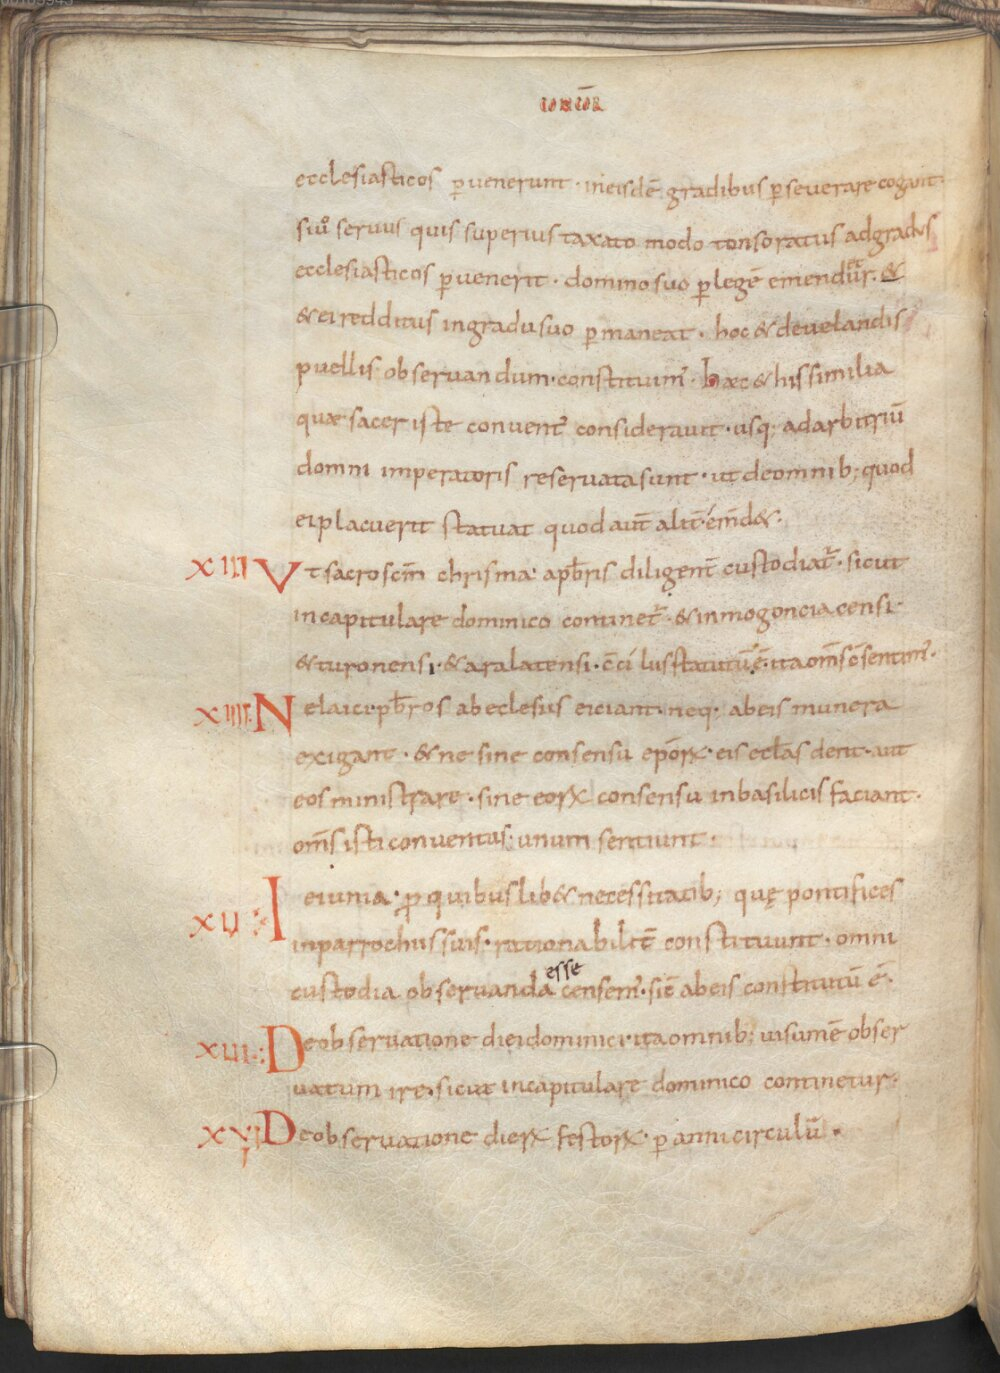 ecclesiasticos ꝑuenerunt · ineisdē gradibus ꝑseuerare cogant ·
siū seruus quis superius taxato modo tonsoratus adgradus
ecclesiasticos ꝑuenerit · domino suo ꝑ legē emendet̄ur · &
& ei redditus ingradu suo ꝑmaneat · hoc & deuelandis
puellis obseruandum · constituim᾽ · haec & his similia
quae sacer iste conuent᾽ considerauit · usq; adarbitriū
domni imperatoris reseruata sunt · ut deomnib; quod
ei placuerit statuat quod aut̄ alit̄ em̄d& ·
XIII Vt sacroscm̄ chrisma apb̄ris diligent̄ custodiat᾽ · sicut
incapitulare dominico continet᾽ · & inmogoncia censi ·
& turonensi · & aralatensi · c̄ci lus statutū ē · ita om̄s c̄sentim᾽ ·
XIIII · Ne laici pb̄ros ab eclesiis eiciant · neq; abeis munera
exigant · & ne sine consensu ep̄orꝝ · eis eccl̄as dent · aut
eos ministrare · sine eorꝝ consensu inbasilicis faciant ·
om̄s isti conuentus · unum sentiunt ·
XU : Ieiunia · ꝓ quibus lib& necessitatib; quę pontifices
inparrochiis suis · rationabilit̄ constituunt · omni
esse
custodia obseruanda censem᾽ · sic̄ abeis constitutū ē ·
XUI : Deobseruatione diei dominici · ita omnib; uisum ē obser
uatum ire · sicut incapitulare dominico continetur ·
XVII Deobseruatione dierꝝ festorꝝ · ꝑ anni circulū ·